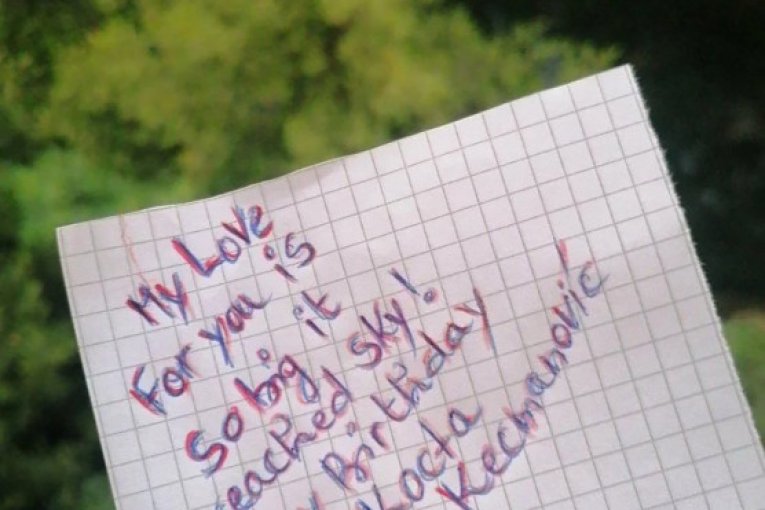 My Love
For you is
So big it
reached sky!
Birthday
Kocta
Kecmanović